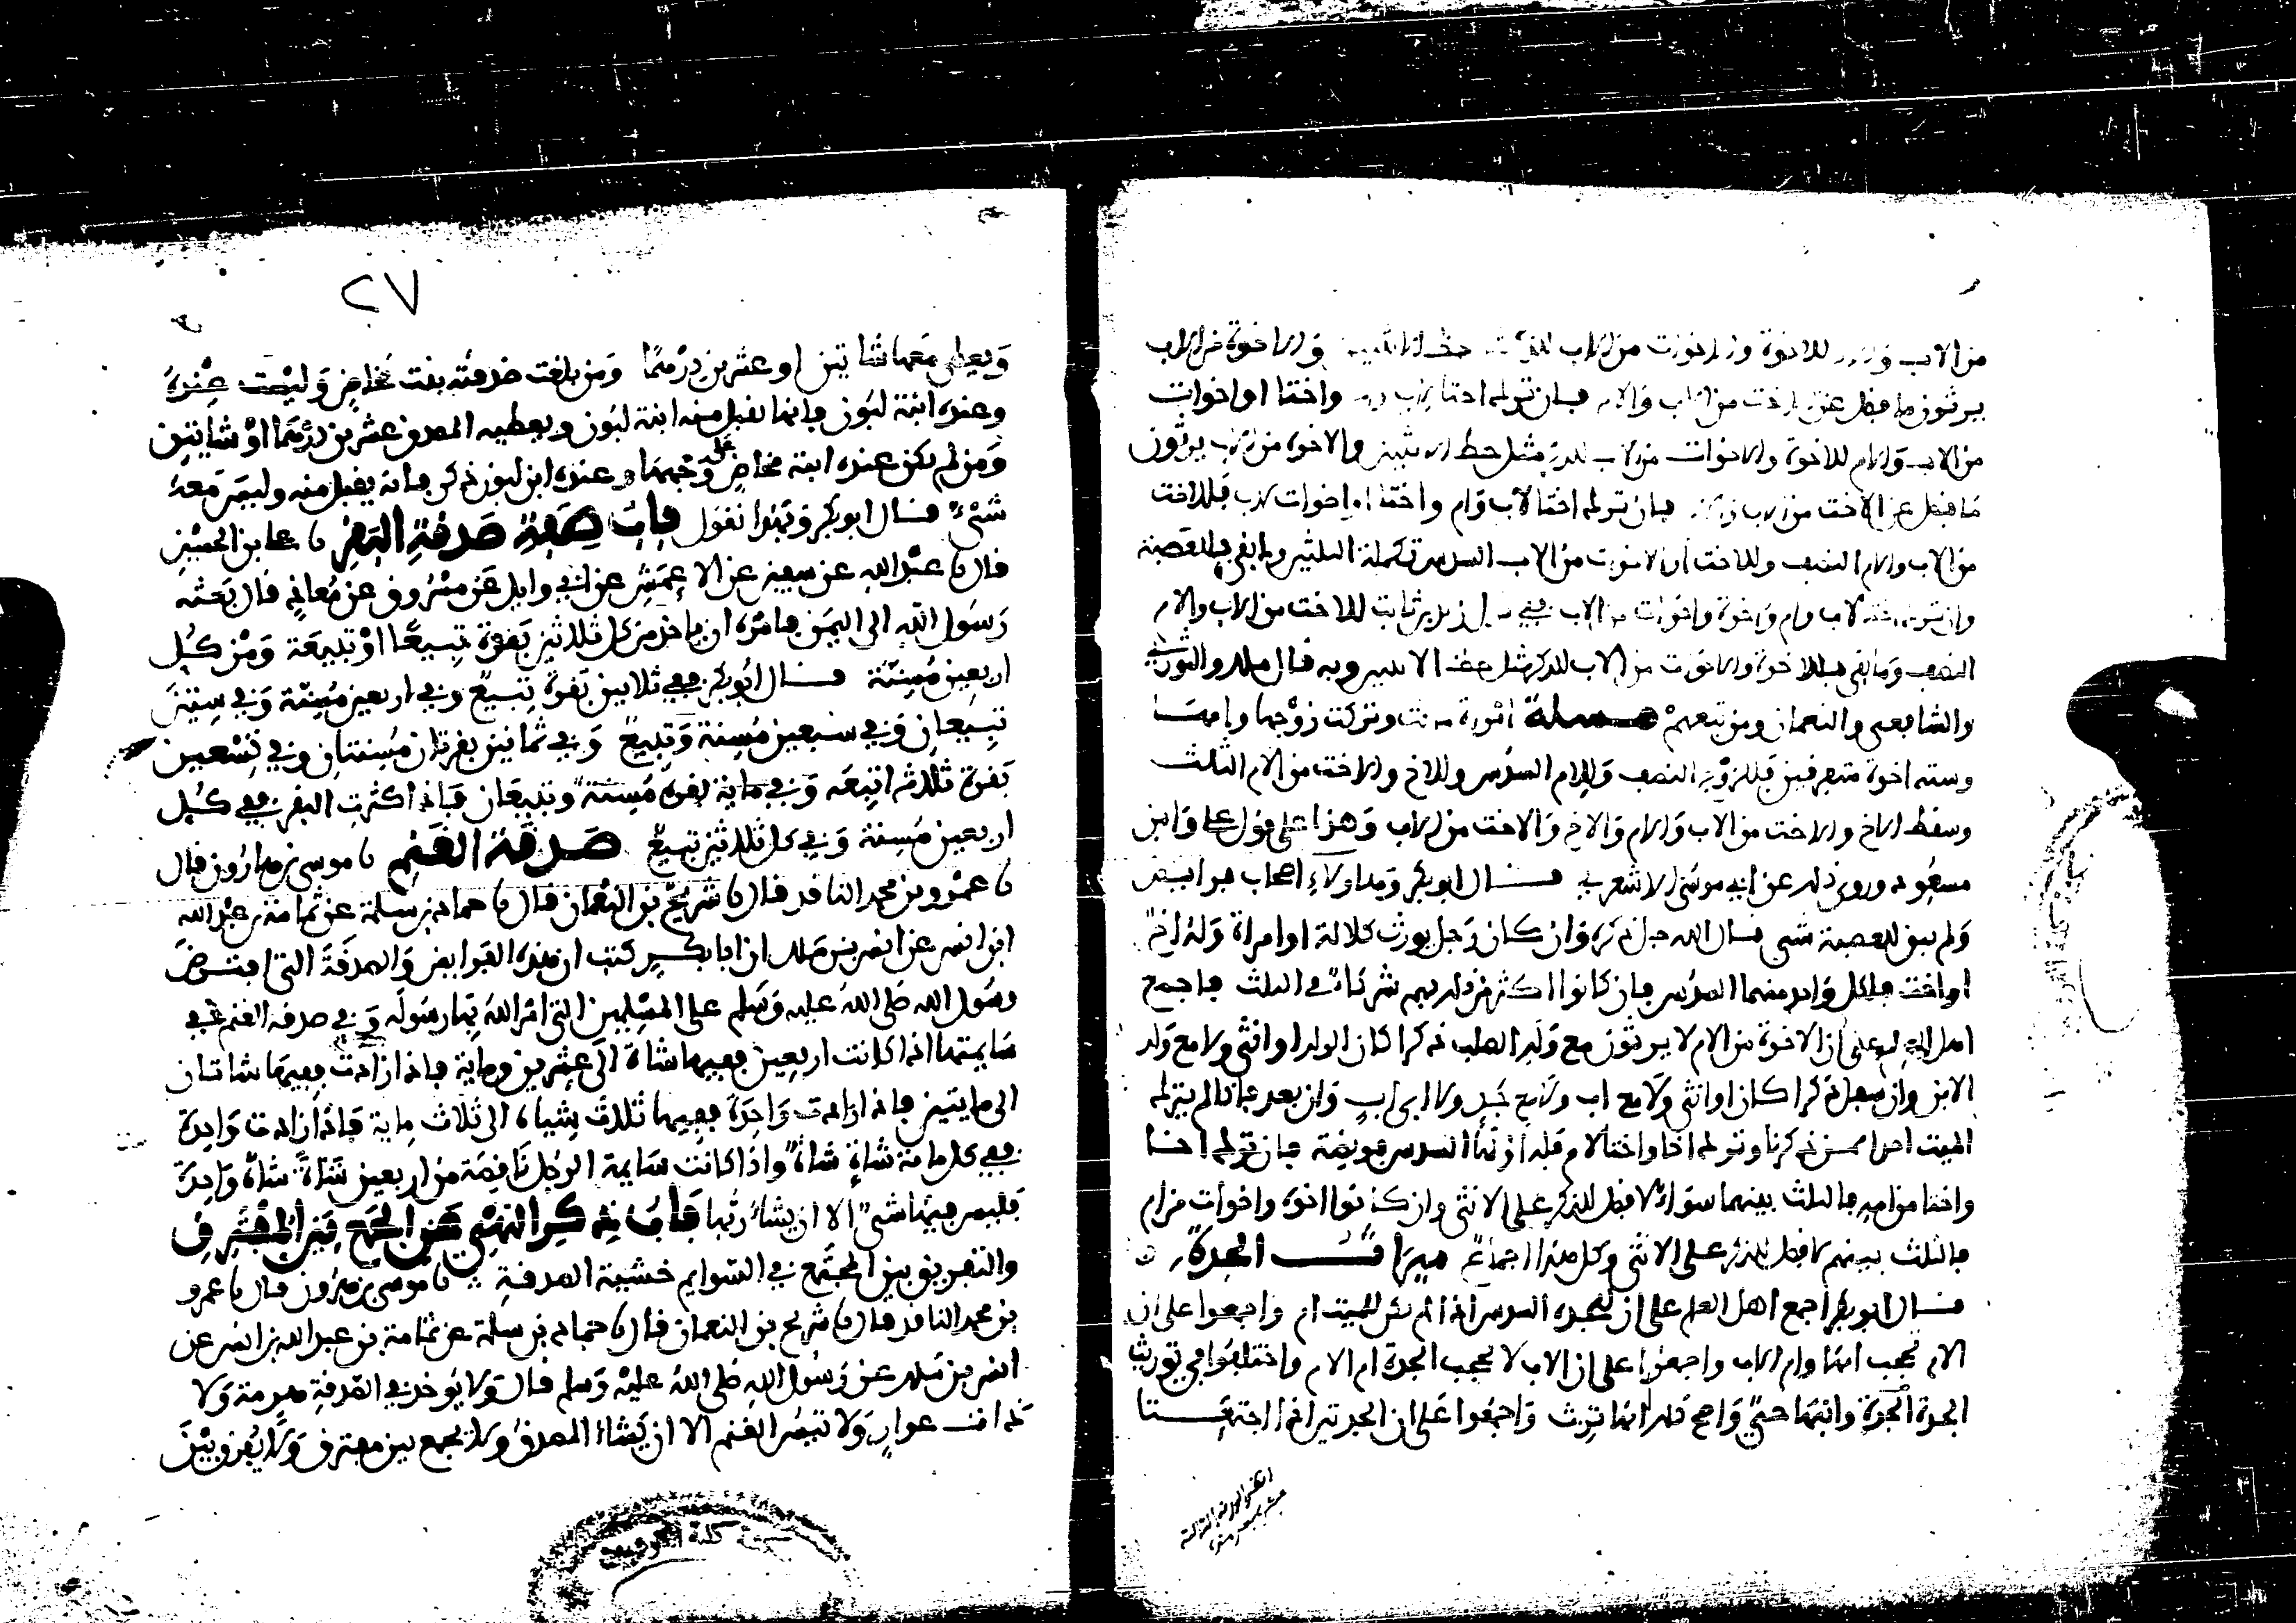 من الاب وللاخوة والاخوات من الاب للذكر حظ الانثيين والاخوة من الاب
يرثون ما فضل عن الاخت من الاب والام فان ترك اختا لاب وام واختا او اخوات
من الاب والام للاخوة والاخوات من الاب للذكر مثل حظ الانثيين والاخوة من الاب يرثون
ما فضل عن الاخت من الاب والام فان ترك اختا لاب وام واختا او اخوات لاب فللاخت
من الاب والام النصف وللاخت او الاخوات من الاب السدس تكملة الثلثين وما بقي فللعصبة
وان ترك اختا لاب وام واخوة واخوات من الاب ففي قول زيد بن ثابت للاخت من الاب والام
النصف وما بقي فللاخوة والاخوات من الاب للذكر مثل حظ الانثيين وبه قال ملك والثوري
والشافعي والنعمان ومن تبعهم مسلة امرة ماتت وتركت زوجها وامها
وستة اخوة متفرقين فللزوج النصف وللام السدس وللاخ والاخت من الام الثلث
وسقط الاخ والاخت من الاب والام والاخ والاخت من الاب وهذا على قول علي وابن
مسعود وروي ذلك عن ابي موسى الاشعري قال ابو بكر وهاولاء اصحاب فرايض
ولم يبق للعصبة شي قال الله جل ذكره وان كان رجل يورث كلالة او امراة وله اخ
او اخت فلكل واحد منهما السدس فان كانوا اكثر من ذلك فهم شركاء في الثلث فاجمع
اهل العلم على ان الاخوة من الام لا يرثون مع ولد الصلب ذكرا كان الولد او انثى ولا مع ولد
الابن وان سفل ذكرا كان او انثى ولا مع اب ولا مع جد ولا ابي اب وان بعد فاذا لم يترك
الميت احدا ممن ذكرنا وترك اخا او اختا لام فله او لها السدس فريضة فان ترك اخا
واختا من امه فالثلث بينهما سواء لا فضل للذكر على الانثى وان كانوا اخوة واخوات من ام
فالثلث بينهم لا فضل للذكر على الانثى وكل هذا اجماع ميراث الجدة
قال ابو بكر اجمع اهل العلم على ان للجدة السدس اذا لم تكن للميت ام واجمعوا على ان
الام تحجب امها وام الاب واجمعوا على ان الاب لا يحجب الجدة ام الام واختلفوا في توريث
الجدة الجدة وابنها حي واجمع كلهم انها ترث واجمعوا على ان الجدتين اذا اجتمعتا
٢٧
ويعطي معها شاتين او عشرين درهما ومن بلغت صدقته بنت مخاض وليست عنده
وعنده ابنة لبون فانها تقبل منه ابنة لبون ويعطيه المصدق عشرين درهما او شاتين
ومن لم تكن عنده ابنة مخاض على وجهها وعنده ابن لبون ذكر فانه يقبل منه وليس معه
شيء قال ابو بكر وبهذا نقول باب صفة صدقة البقر نا علي بن الحسين
قال نا عبد الله عن سفين عن الاعمش عن ابي وايل عن مسروق عن معاذ قال بعثه
رسول الله الى اليمن فامره ان ياخذ من كل ثلاثين بقرة تبيعا او تبيعة ومن كل
اربعين مسنة قال ابو بكر ففي ثلاثين بقرة تبيع وفي اربعين مسنة وفي ستين
تبيعان وفي سبعين مسنة وتبيع وفي ثمانين بقرتان مسنتان وفي تسعين
بقرة ثلاث اتبعه وفي ماية بقرة مسنة وتبيعان فاذا كثرت البقر ففي كل
اربعين مسنة وفي كل ثلاثين تبيع صدقة الغنم نا موسى بن هارون قال
نا عمرو بن محمد الناقد قال نا شريح بن النعمان قال نا حماد بن سلمة عن ثمامة بن عبد الله
ابن انس عن انس بن ملك ان ابا بكر كتب ان هذه الفرايض والصدقة التي افترض
رسول الله صلى الله عليه وسلم على المسلمين التي امر الله بها رسوله وفي صدقة الغنم في
سايمتها اذا كانت اربعين ففيها شاة الى عشرين وماية فاذا زادت ففيها شاتان
الى مايتين فاذا زادت واحدة ففيها ثلاث شياه الى ثلاث ماية فاذا زادت واحدة
ففي كل مائة شاة شاة واذا كانت سايمة الرجل ناقصة من اربعين شاة شاة واحدة
فليس فيها شي الا ان يشاء ربها باب ذكر النهي عن الجمع بين المفترق
والتفريق بين المجتمع في السوايم خشية الصدقة نا موسى بن هرون قال نا عمرو
بن محمد الناقد قال نا شريح بن النعمان قال نا حماد بن سلمة عن ثمامة بن عبد الله بن انس عن
انس بن ملك عن رسول الله صلى الله عليه وسلم قال ولا يوخذ في الصدقة هرمة ولا
ذات عوار ولا تيس الغنم الا ان يشاء المصدق ولا يجمع بين مفترق ولا يفرق بين